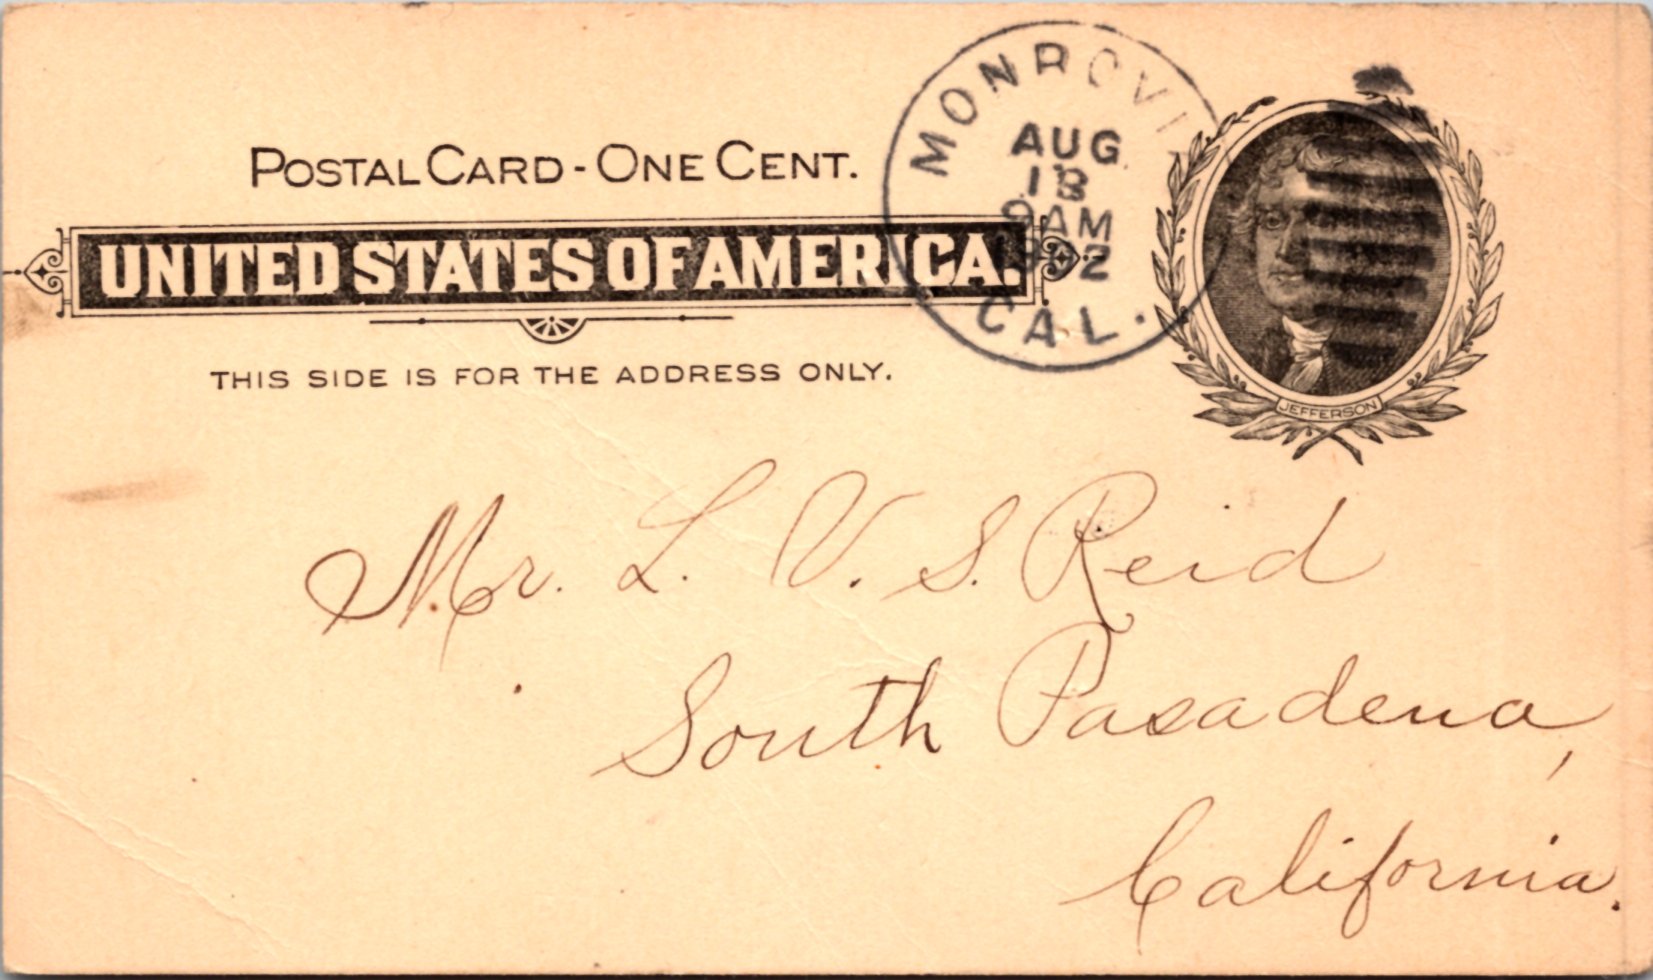 POSTAL CARD - ONE CENT.
UNITED STATES OF AMERICA.
THIS SIDE IS FOR THE ADDRESS ONLY.
MONROVI
AUG
18
9 AM
2
CAL.
JEFFERSON
Mr. L. V. S. Reid
South Pasadena,
California.